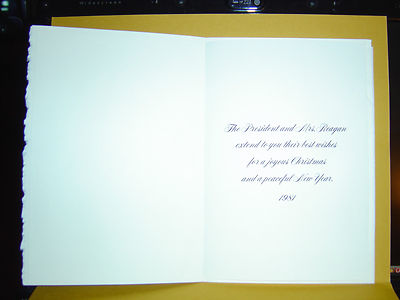 Widescreen
The President and Mrs. Reagan
extend to you their best wishes
for a joyous Christmas
and a peaceful New Year.
1981